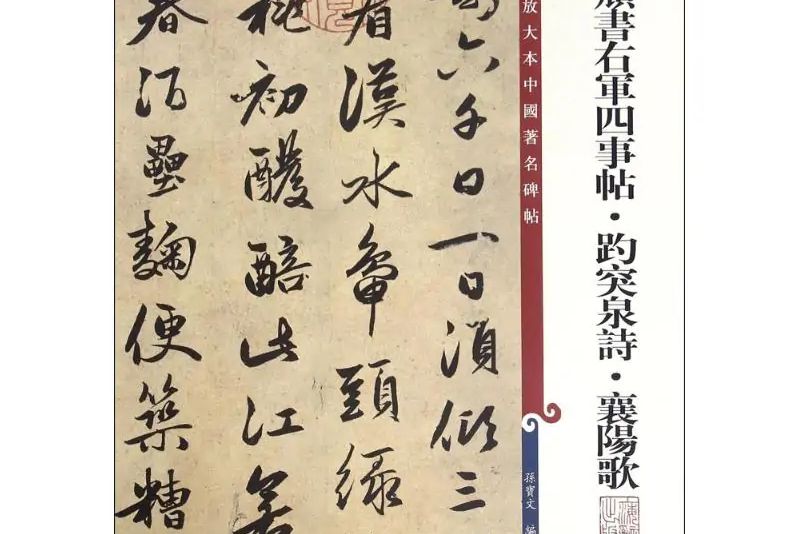 書右軍四事帖・趵突泉詩・襄陽歌
放大本中國著名碑帖
孫寶文 編
六千日一日須傾三
看漢水鴨頭綠
初醱醅此江若
春酒壘麴便築糟